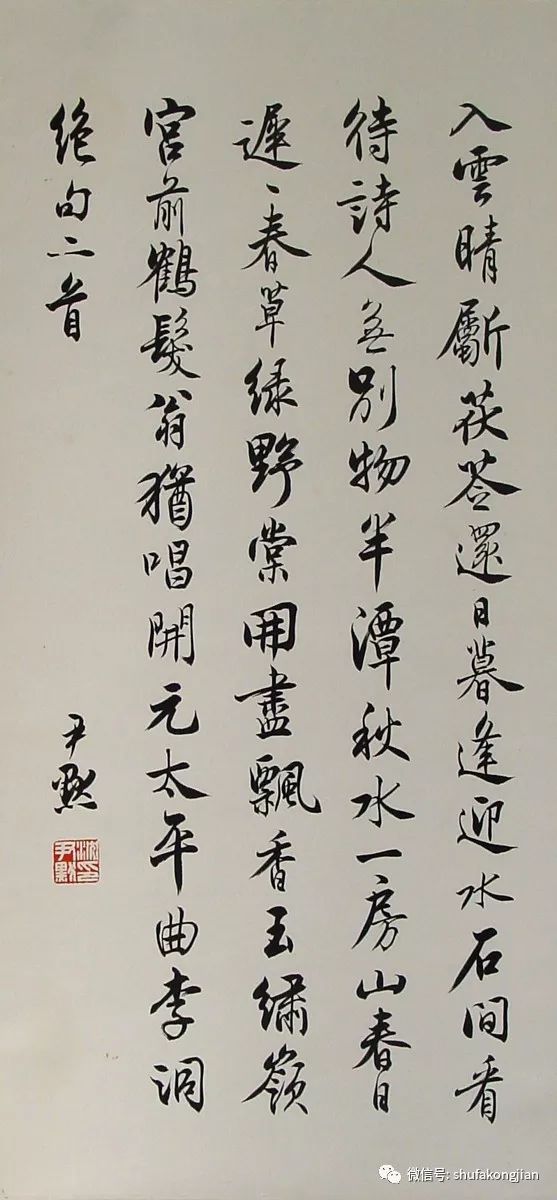 入雲晴斸茯苓還日暮逢迎水石間看
待詩人無別物半潭秋水一房山春日
遲〻春草綠野棠開盡飄香玉繡嶺
宮前鶴髮翁猶唱開元太平曲李洞
絕句二首
尹默
沈尹默印
微信号: shufakongjian